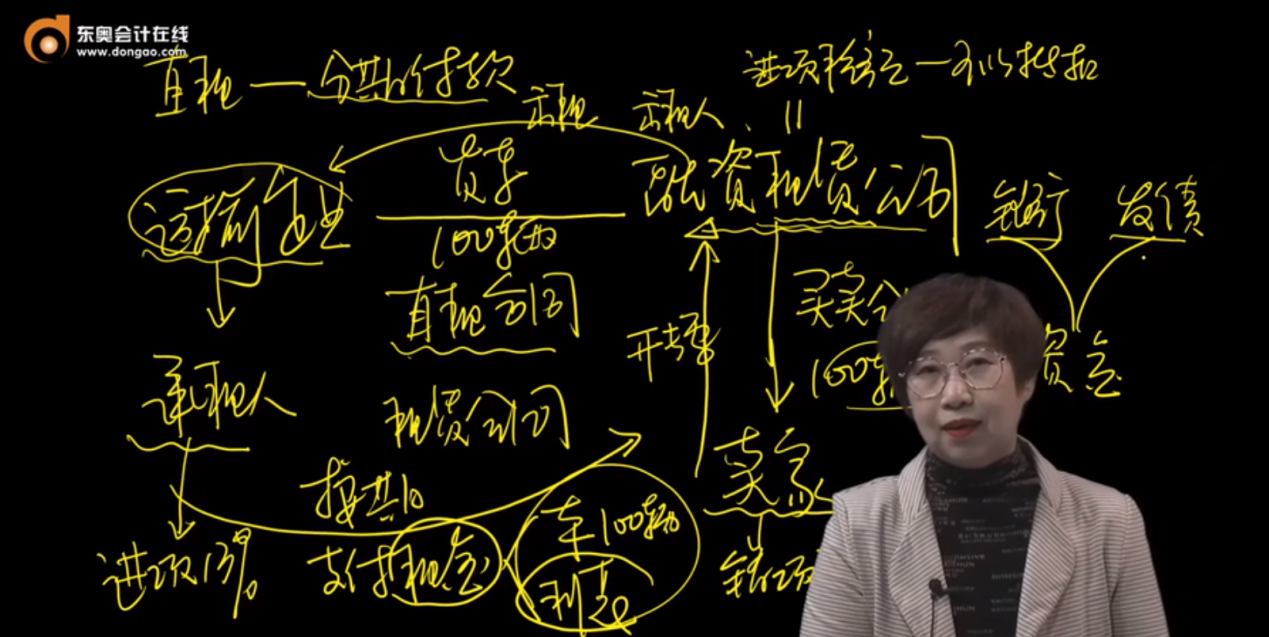 东奥会计在线
www.dongao.com
直租—分期付款
进项税额—可以抵扣
出租
出租人
货车
融资租赁公司
运输企业
银行
发债
100辆
直租合同
买卖合
100辆
开专票
资金
承租人
租赁合同
卖家
按期
支付租金
车100辆
利息
进项13%
销项